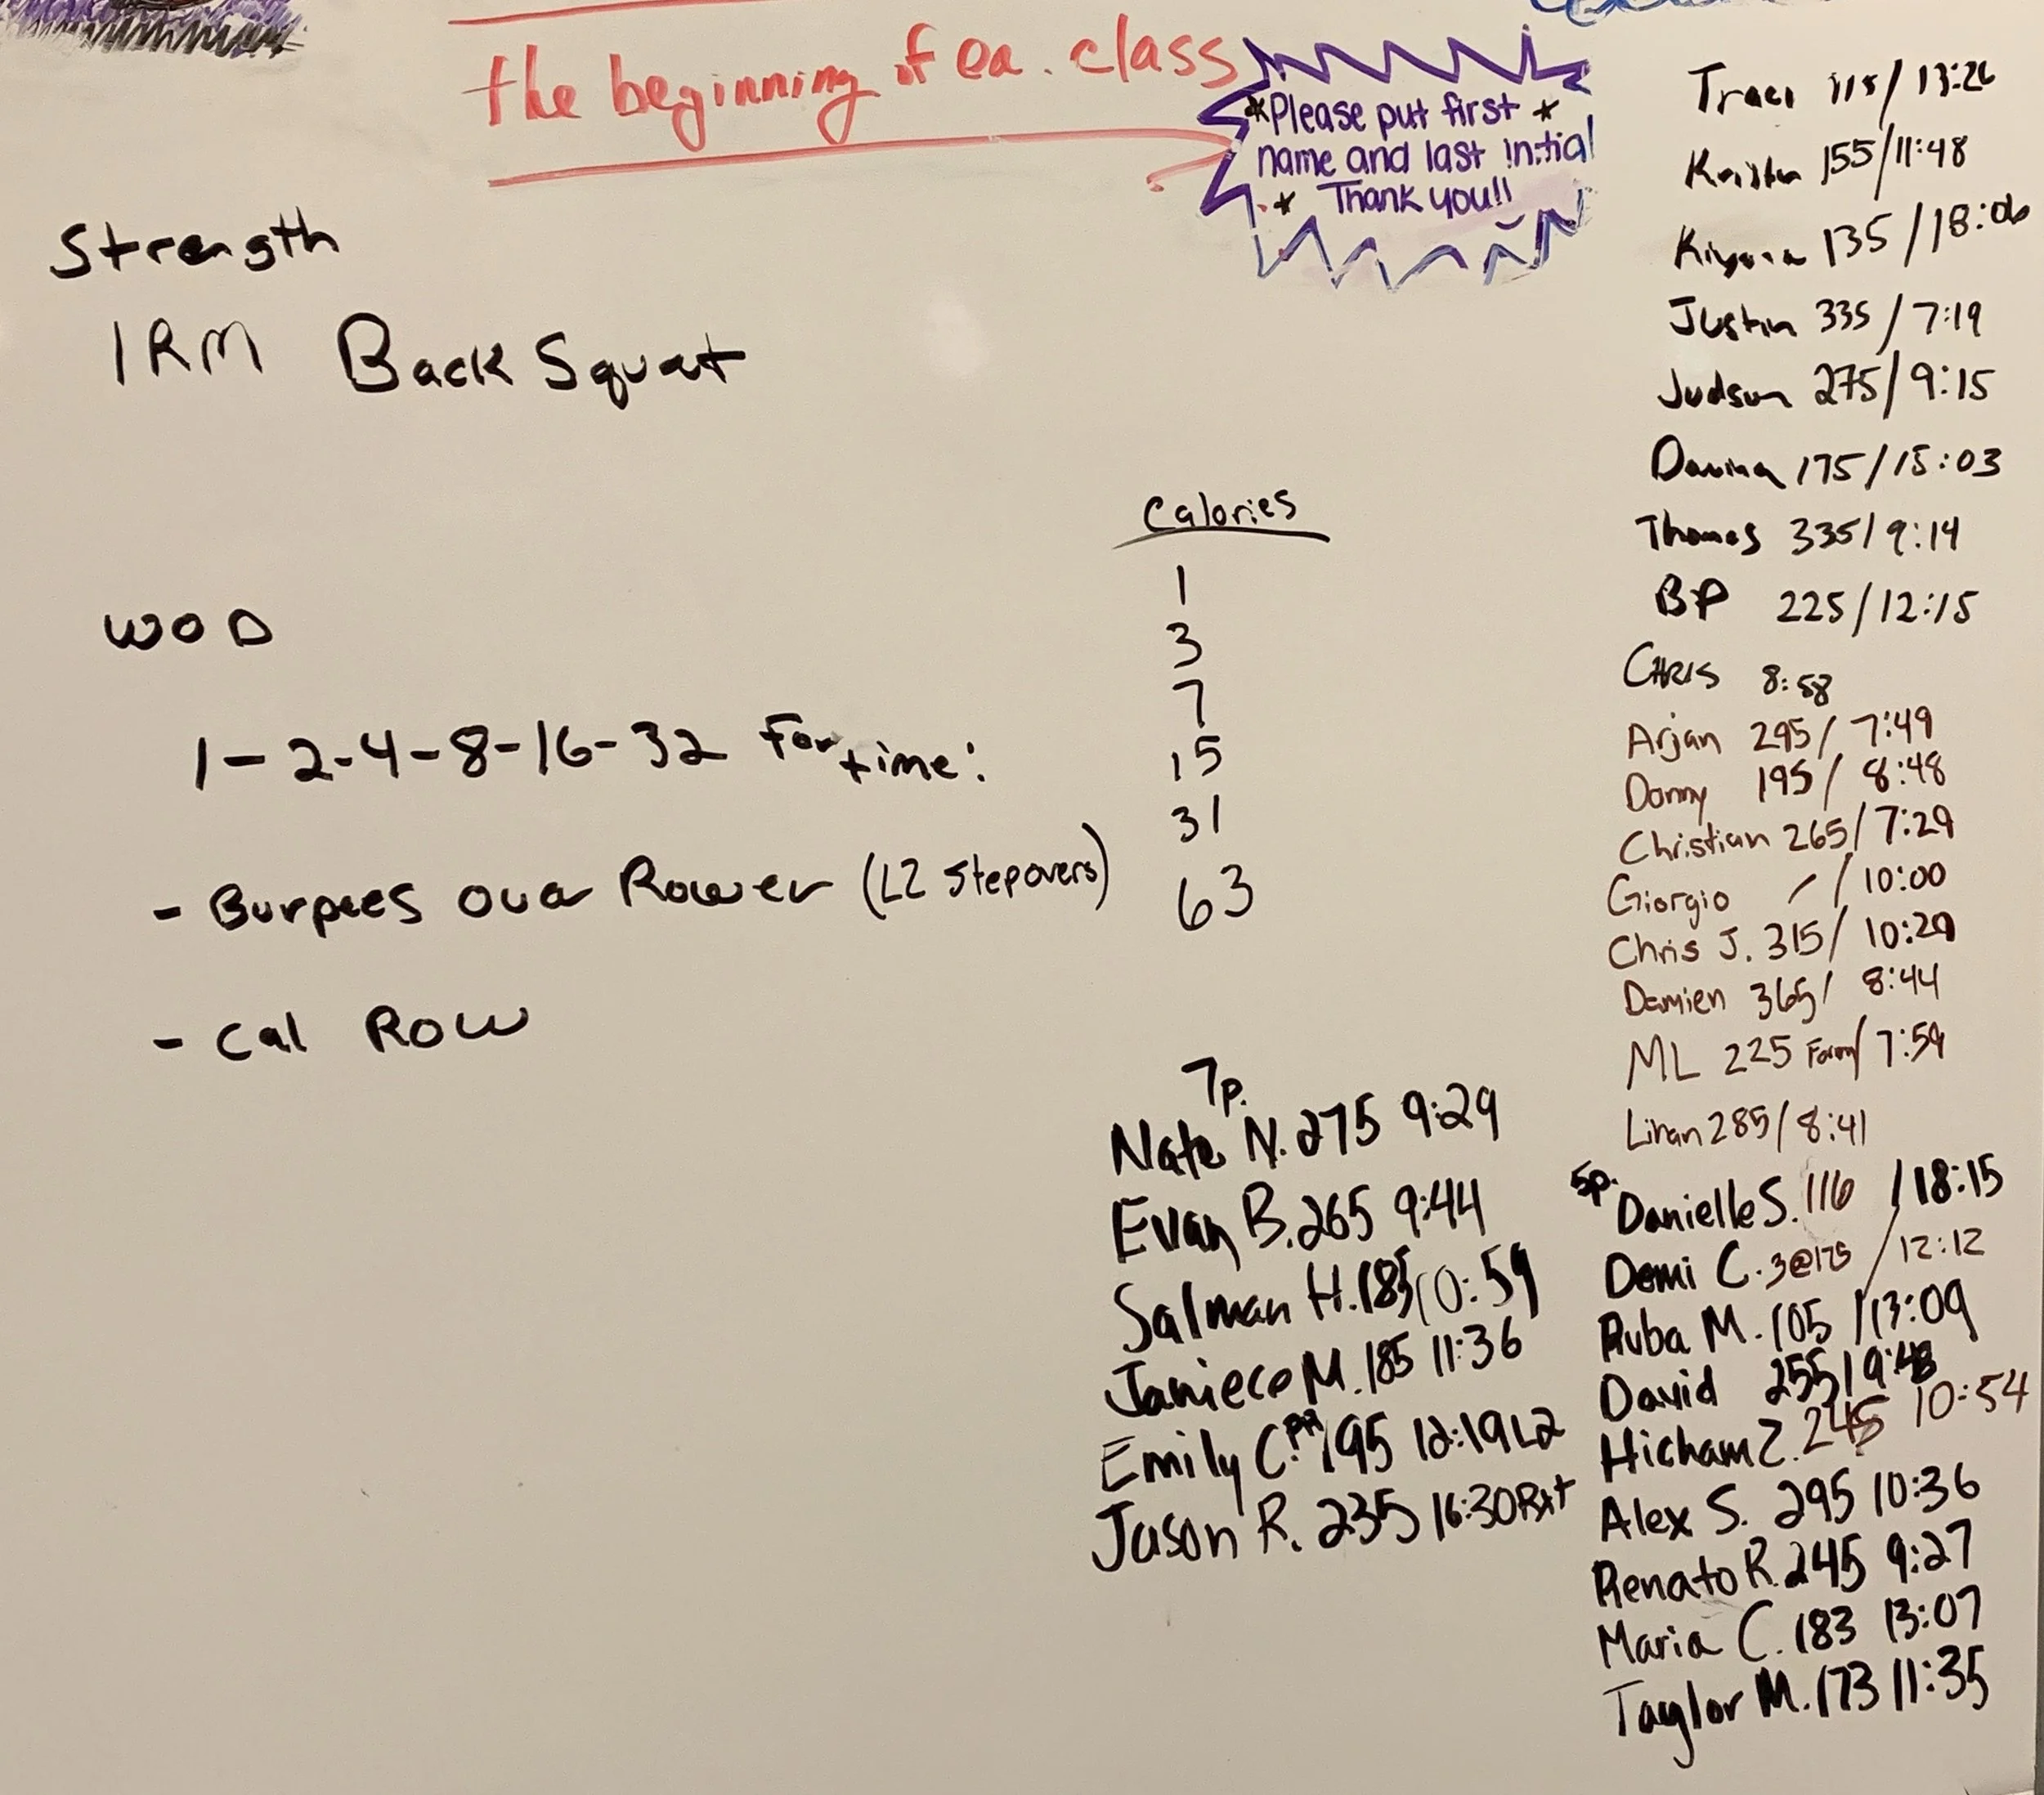 the beginning of ea. class
*Please put first *
name and last initial
* Thank you!!
Strength
1RM Back Squat
WOD
1-2-4-8-16-32 For time:
- Burpees over Rower (L2 stepovers)
- Cal Row
Calories
1
3
7
15
31
63
7p.
Nate N. 275 9:29
Evan B. 265 9:44
Salman H. 185 10:59
Janiece M. 185 11:36
Emily C. PR 195 12:19 L2
Jason R. 235 16:30 Rx+
Traci 115/13:26
Kristen 155/11:48
Kiyona 135/18:06
Justin 335/7:19
Judson 275/9:15
Davina 175/15:03
Thomas 335/9:14
BP 225/12:15
CHRIS 8:58
Arjan 295/7:49
Donny 195/8:48
Christian 265/7:29
Giorgio / /10:00
Chris J. 315/10:20
Damien 365/8:44
ML 225 Form/7:59
Liran 285/8:41
5p.
Danielle S. 116 /18:15
Demi C. 3@175 /12:12
Ruba M. 105 /13:09
David 255/9:48
Hicham Z. 245 10:54
Alex S. 295 10:36
Renato R. 245 9:27
Maria C. 183 13:07
Taylor M. 173 11:35